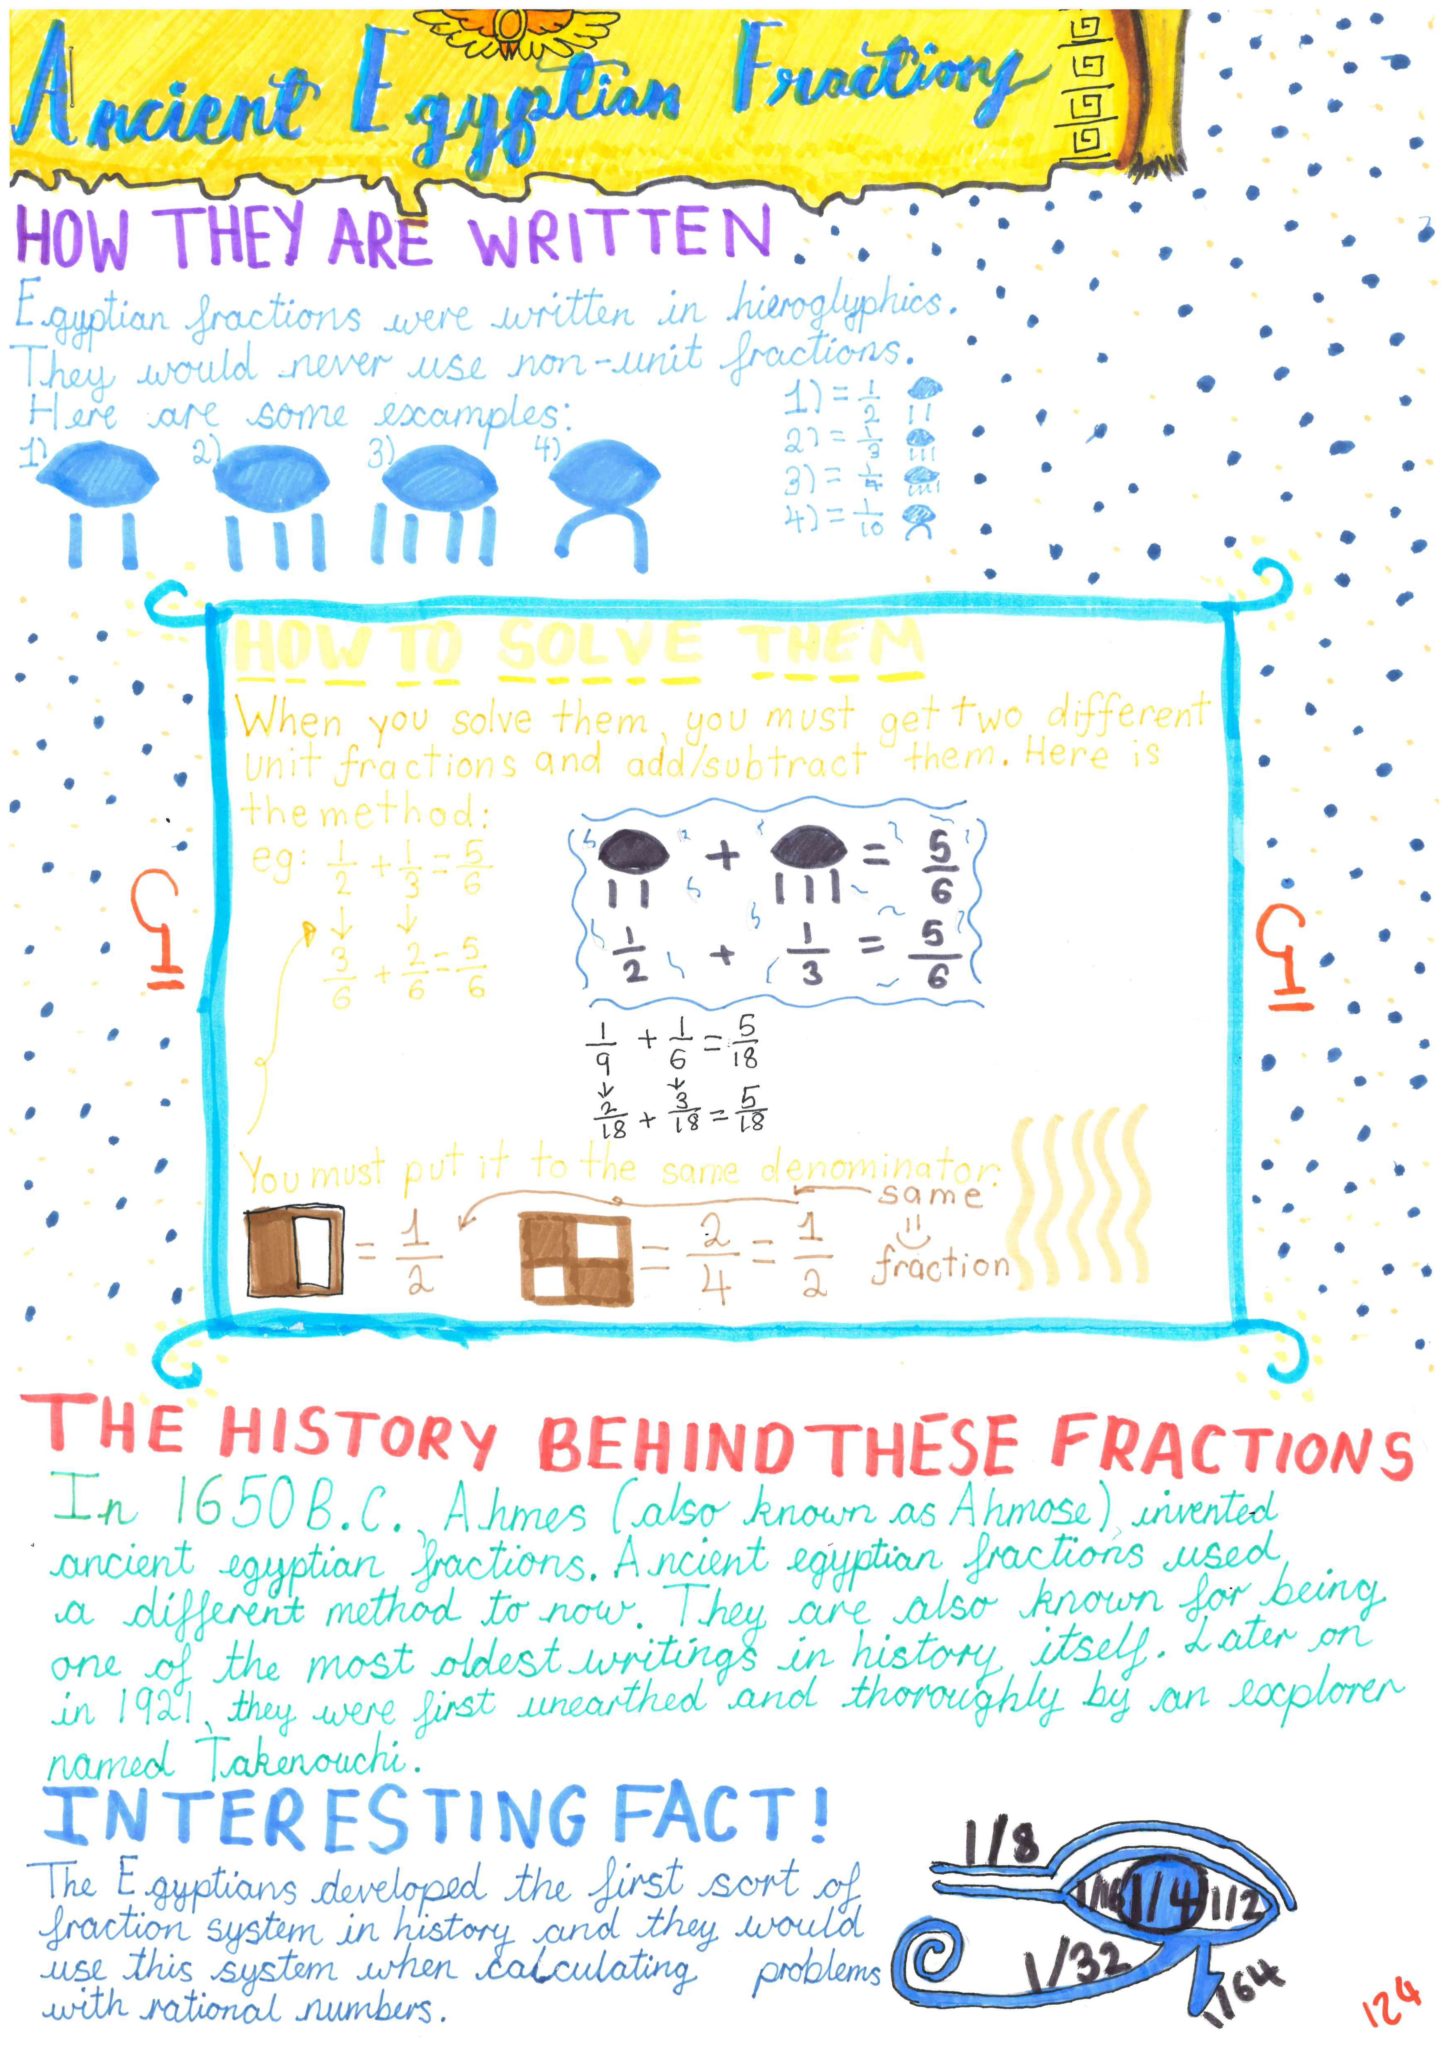 Ancient Egyptian Fractions
HOW THEY ARE WRITTEN
Egyptian fractions were written in hieroglyphics.
They would never use non-unit fractions.
Here are some examples:
1) 2) 3) 4)
1) = 1/2
2) = 1/3
3) = 1/4
4) = 1/10
HOW TO SOLVE THEM
When you solve them, you must get two different
unit fractions and add/subtract them. Here is
the method:
eg: 1/2 + 1/3 = 5/6
3/6 + 2/6 = 5/6
+ = 5/6
1/2 + 1/3 = 5/6
1/9 + 1/6 = 5/18
2/18 + 3/18 = 5/18
You must put it to the same denominator.
= 1/2
= 2/4 = 1/2
same
fraction
THE HISTORY BEHIND THESE FRACTIONS
In 1650 B.C., Ahmes (also known as Ahmose), invented
ancient egyptian fractions. Ancient egyptian fractions used
a different method to now. They are also known for being
one of the most oldest writings in history itself. Later on
in 1921, they were first unearthed and thoroughly by an explorer
named Takenouchi.
INTERESTING FACT!
The Egyptians developed the first sort of
fraction system in history and they would
use this system when calculating problems
with rational numbers.
1/8
1/16 1/4 1/2
1/32
1/64
124